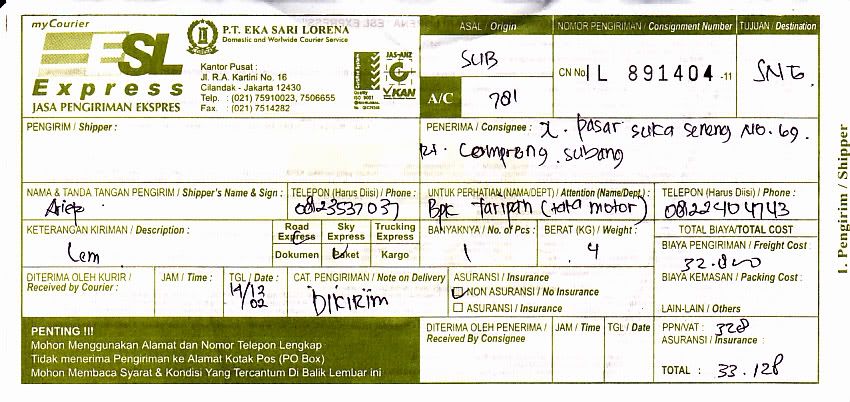 myCourier
ESL
Express
JASA PENGIRIMAN EKSPRES
P.T. EKA SARI LORENA
Domestic and Worlwide Courier Service
Kantor Pusat :
Jl. R.A. Kartini No. 16
Cilandak - Jakarta 12430
Telp. : (021) 75910023, 7506655
Fax. : (021) 7514282
JAS-ANZ
Quality
ISO 9001
KAN
ASAL / Origin
SUB
A/C
781
NOMOR PENGIRIMAN / Consignment Number
CN No. IL 891404 -11
TUJUAN / Destination
SNG
PENGIRIM / Shipper :
PENERIMA / Consignee : Jl. pasar suka seneng No. 69.
Compreng . subang
NAMA & TANDA TANGAN PENGIRIM / Shipper's Name & Sign :
Ariep
TELEPON (Harus Diisi) / Phone :
08123537037
UNTUK PERHATIAN (NAMA/DEPT) / Attention (Name/Dept.) :
Bpk Taripan (tata motor)
TELEPON (Harus Diisi) / Phone :
08122404743
KETERANGAN KIRIMAN / Description :
Lem
Road Express
Sky Express
Trucking Express
Dokumen
Paket
Kargo
BANYAKNYA / No. of Pcs :
1
BERAT (KG) / Weight :
4
TOTAL BIAYA/TOTAL COST
BIAYA PENGIRIMAN / Freight Cost
32.800
BIAYA KEMASAN / Packing Cost :
LAIN-LAIN / Others
DITERIMA OLEH KURIR /
Received by Courier :
JAM / Time :
TGL / Date :
14/13
02
CAT. PENGIRIMAN / Note on Delivery
DIKIRIM
ASURANSI / Insurance
NON ASURANSI / No Insurance
ASURANSI / Insurance
PENTING !!!
Mohon Menggunakan Alamat dan Nomor Telepon Lengkap
Tidak menerima Pengiriman ke Alamat Kotak Pos (PO Box)
Mohon Membaca Syarat & Kondisi Yang Tercantum Di Balik Lembar ini
DITERIMA OLEH PENERIMA /
Received By Consignee
JAM / Time
TGL / Date
PPN/VAT : 328
ASURANSI / Insurance :
TOTAL : 33.128
1. Pengirim / Shipper